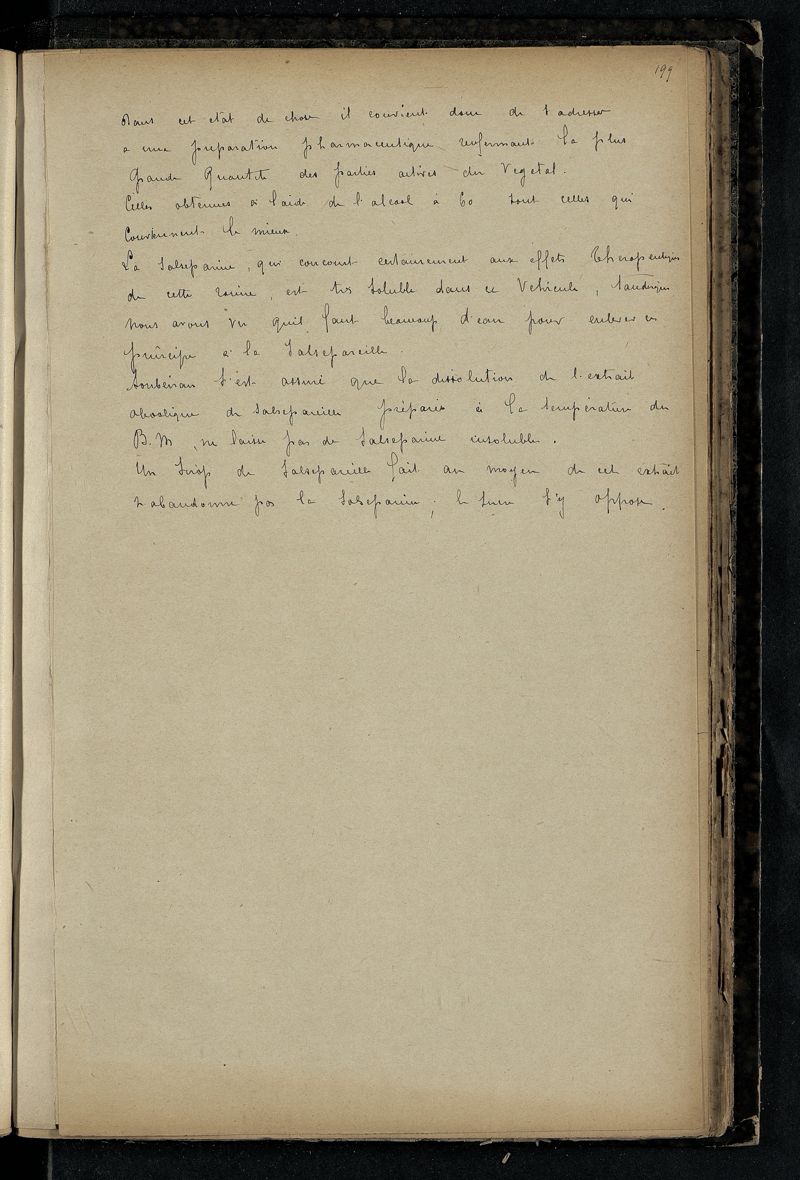 199
Dans cet etat de chose il convient donc de s'adresser
a une preparation pharmaceutique renfermant la plus
Grande Quantité des parties actives du Vegetal.
Celles obtenues à l'aide de l'alcool à 60 sont celles qui
Conviennent le mieux.
La Salseparine, qui concourt certainement aux effets Therapeutiques
de cette racine, est très soluble dans ce Vehicule, tandisque
nous avons vu quil faut beaucoup d'eau pour enlever ce
principe à la Salsepareille.
Soubeiran s'est assuré que la dissolution de l'extrait
alcoolique de Salsepareille préparée à la température du
B.M, ne laisse pas de Salseparine insoluble.
Un Sirop de Salsepareille fait au moyen de cet extrait
n'abandonne pas la Salseparine, le sucre s'y oppose.